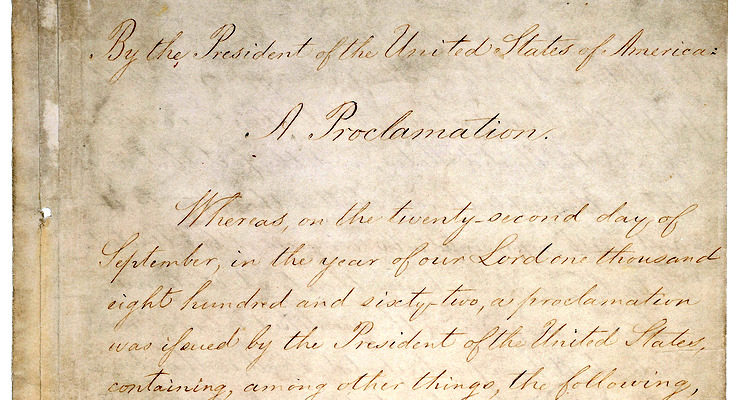 By the President of the United States of America:
A Proclamation.
Whereas, on the twenty-second day of
September, in the year of our Lord one thousand
eight hundred and sixty-two, a proclamation
was issued by the President of the United States,
containing, among other things, the following,